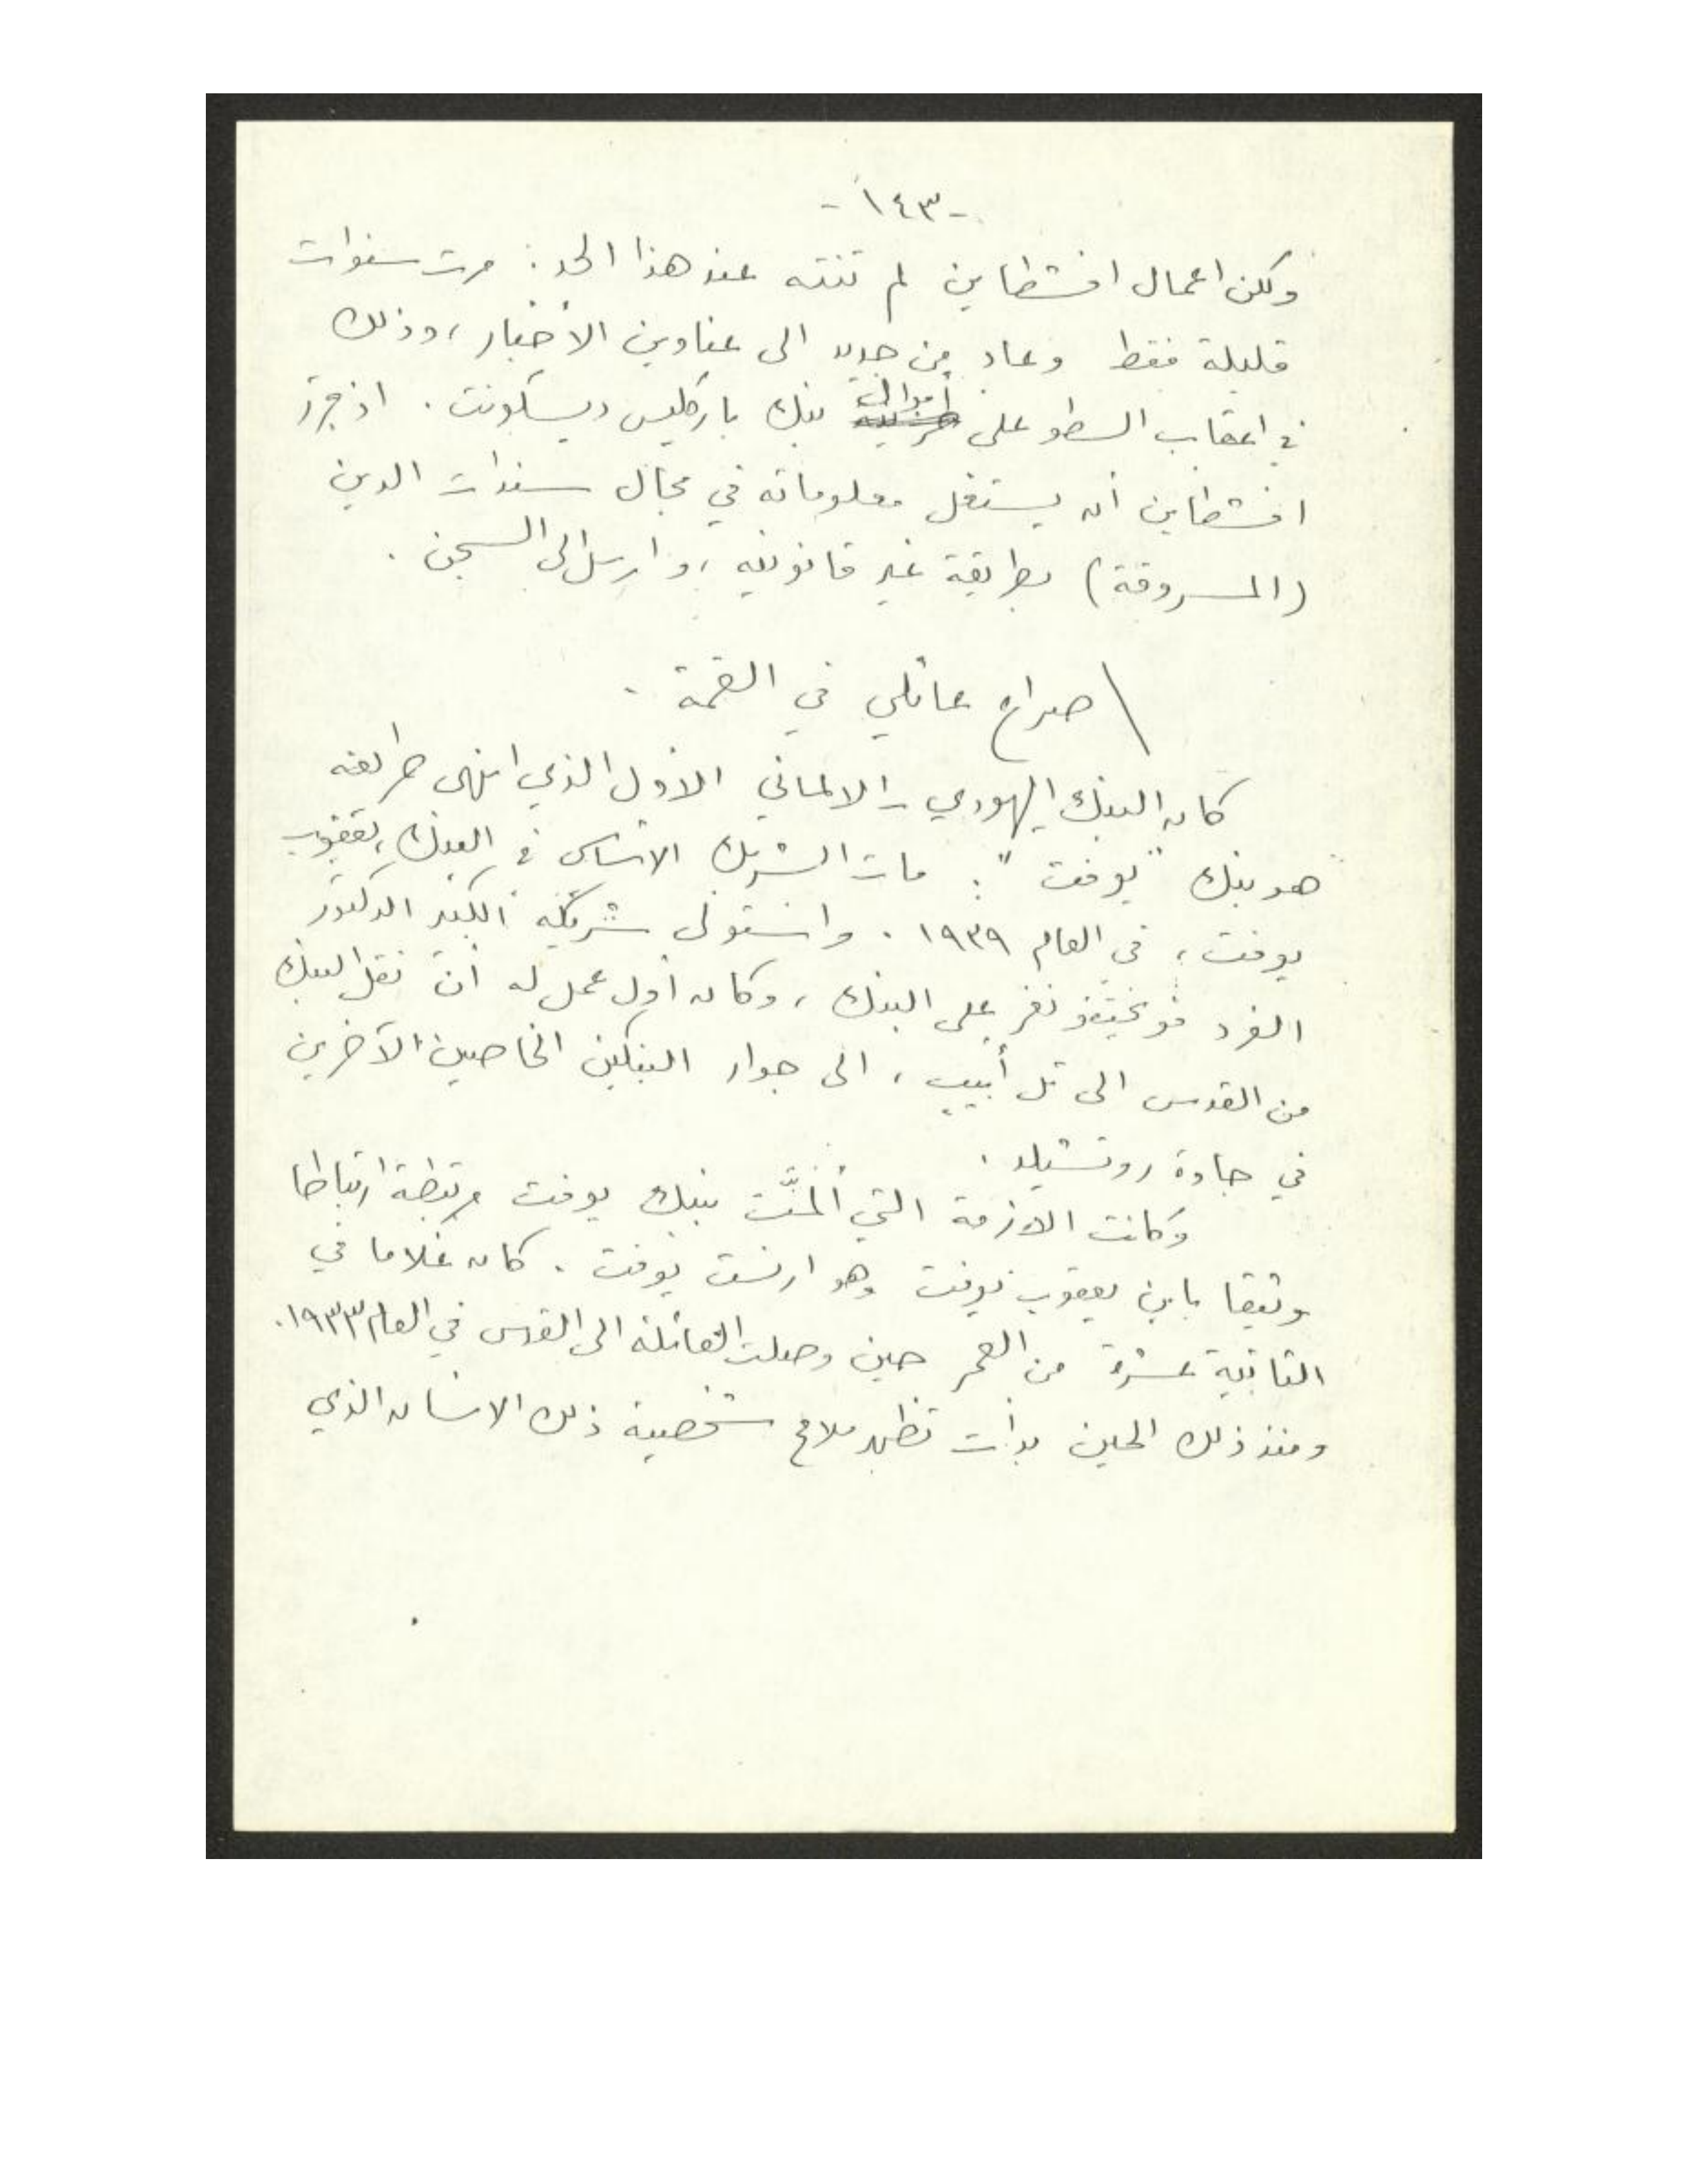 -١٤٣-
ولكن اعمال افشطاين لم تنته عند هذا الحد: مرت سنوات
قليلة فقط وعاد من جديد الى عناوين الأخبار، وذلك
في اعقاب السطو على أموال بنك باركليس ديسكونت. اذ قرر
افشطاين ان يستغل معلوماته في مجال سندات الدين
(المسروقة) بطريقة غير قانونيه، وارسل الى السجن.
صراع عائلي في القمة.
كان البنك اليهودي - الالماني الأول الذي انهى طريقه
هو بنك "يوفت": مات الشريك الاساسي في البنك، يعقوب
يوفت، في العام ١٩٣٩. واستولى شريكه الكبير الدكتور
الفرد على البنك، وكان أول عمل له أن نقل البنك
من القدس الى تل أبيب، الى جوار البنكين الخاصين الآخرين
في جادة روتشيلد.
وكانت الازمة التي ألمّت ببنك يوفت مرتبطة ارتباطا
وثيقا بابن يعقوب يوفت وهو ارنست يوفت. كان غلاما في
الثانية عشرة من العمر حين وصلت العائلة الى القدس في العام ١٩٣٣.
ومنذ ذلك الحين بدأت تظهر ملامح شخصية ذلك الانسان الذي